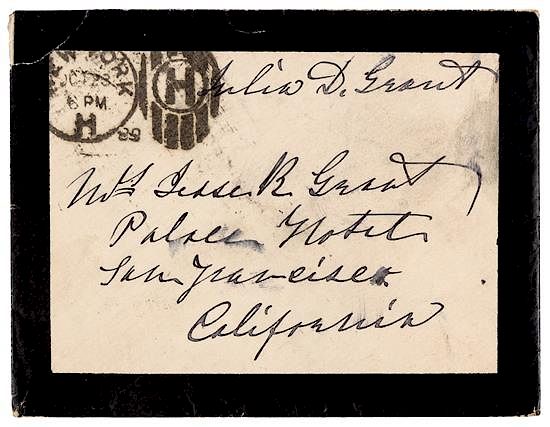 NEW YORK
OCT 23
6 PM
H
89
H
Julia D. Grant
Mrs Jesse R Grant
Palace Hotel
San Francisco
California